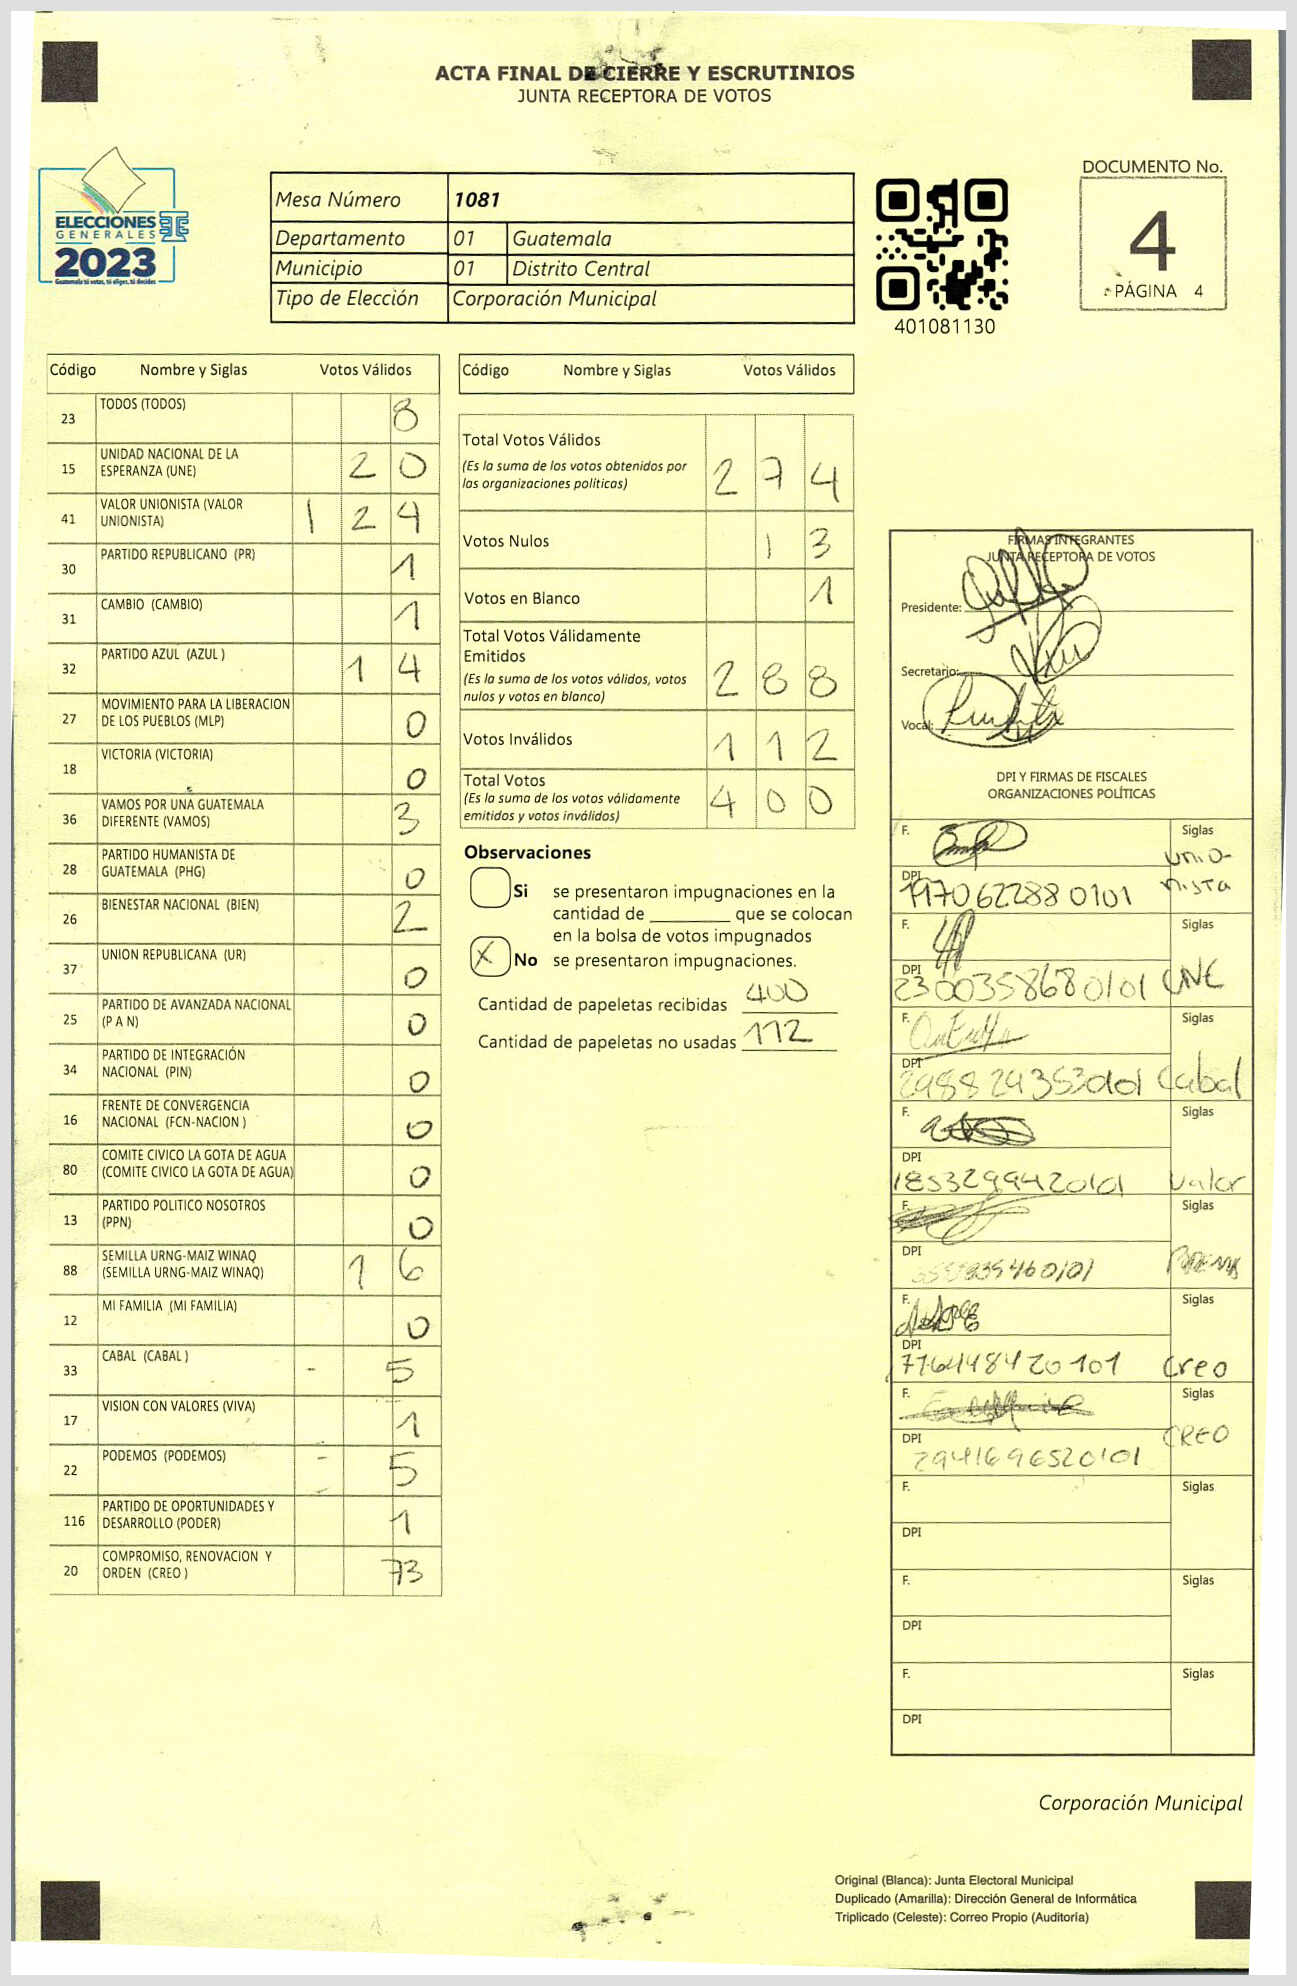 ACTA FINAL DE CIERRE Y ESCRUTINIOS
JUNTA RECEPTORA DE VOTOS
ELECCIONES
GENERALES
2023
Guatemala tú votas, tú eliges, tú decides
Mesa Número 1081
Departamento 01 Guatemala
Municipio 01 Distrito Central
Tipo de Elección Corporación Municipal
401081130
DOCUMENTO No.
4
PÁGINA 4
Código Nombre y Siglas Votos Válidos
23 TODOS (TODOS) 8
15 UNIDAD NACIONAL DE LA
ESPERANZA (UNE) 20
41 VALOR UNIONISTA (VALOR
UNIONISTA) 124
30 PARTIDO REPUBLICANO (PR) 1
31 CAMBIO (CAMBIO) 1
32 PARTIDO AZUL (AZUL ) 14
27 MOVIMIENTO PARA LA LIBERACION
DE LOS PUEBLOS (MLP) 0
18 VICTORIA (VICTORIA) 0
36 VAMOS POR UNA GUATEMALA
DIFERENTE (VAMOS) 3
28 PARTIDO HUMANISTA DE
GUATEMALA (PHG) 0
26 BIENESTAR NACIONAL (BIEN) 2
37 UNION REPUBLICANA (UR) 0
25 PARTIDO DE AVANZADA NACIONAL
(P A N) 0
34 PARTIDO DE INTEGRACIÓN
NACIONAL (PIN) 0
16 FRENTE DE CONVERGENCIA
NACIONAL (FCN-NACION ) 0
80 COMITE CIVICO LA GOTA DE AGUA
(COMITE CIVICO LA GOTA DE AGUA) 0
13 PARTIDO POLITICO NOSOTROS
(PPN) 0
88 SEMILLA URNG-MAIZ WINAQ
(SEMILLA URNG-MAIZ WINAQ) 16
12 MI FAMILIA (MI FAMILIA) 0
33 CABAL (CABAL ) - 5
17 VISION CON VALORES (VIVA) 1
22 PODEMOS (PODEMOS) - 5
116 PARTIDO DE OPORTUNIDADES Y
DESARROLLO (PODER) 1
20 COMPROMISO, RENOVACION Y
ORDEN (CREO ) 73
Código Nombre y Siglas Votos Válidos
Total Votos Válidos
(Es la suma de los votos obtenidos por
las organizaciones políticas) 274
Votos Nulos 13
Votos en Blanco 1
Total Votos Válidamente
Emitidos
(Es la suma de los votos válidos, votos
nulos y votos en blanco) 288
Votos Inválidos 112
Total Votos
(Es la suma de los votos válidamente
emitidos y votos inválidos) 400
Observaciones
Si se presentaron impugnaciones en la
cantidad de ________ que se colocan
en la bolsa de votos impugnados
X No se presentaron impugnaciones.
Cantidad de papeletas recibidas 400
Cantidad de papeletas no usadas 112
FIRMAS INTEGRANTES
JUNTA RECEPTORA DE VOTOS
Presidente:
Secretario:
Vocal:
DPI Y FIRMAS DE FISCALES
ORGANIZACIONES POLÍTICAS
F. Siglas
unio-
nista
DPI
1970622880101
F. Siglas
DPI
2300358680101 UNE
F. Siglas
DPI
29882943530101 Cabal
F. Siglas
DPI
1853299420101 Valor
F. Siglas
DPI
F. Siglas
DPI
Creo
F. Siglas
DPI CREO
2941696520101
F. Siglas
DPI
F. Siglas
DPI
F. Siglas
DPI
Corporación Municipal
Original (Blanca): Junta Electoral Municipal
Duplicado (Amarilla): Dirección General de Informática
Triplicado (Celeste): Correo Propio (Auditoría)